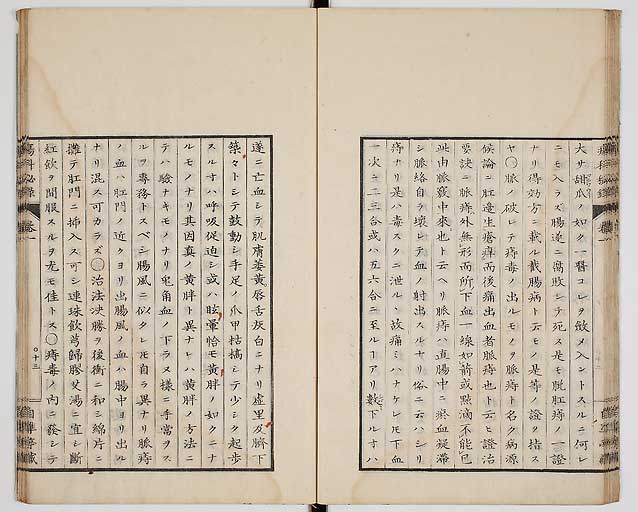 大サ甜瓜ノ如ク一醫コレヲ斂メ入ントスルニ何レ
ニモ入ラズ腸遂ニ腐敗シテ死ス是モ脱肛痔ノ一證
ナリ得効方ニ載ル截腸病ト云モノ是等ノ證ヲ指ス
ヤ〇脈ノ破レテ痔毒ノ出ルモノヲ脈痔ト名ク病源
候論ニ肛邊生瘡痒而後痛出血者脈痔也ト云ヒ證治
要訣ニ脈痔外無形而所下血一線如箭或點滴不能已
此由脈竅中來也ト云ヘリ脈痔ハ直腸中ニ瘀血凝滯
シ脈絡自ラ壞レテ血ノ射出スルナリ俗ニ云ハシリ
痔ナリ是ハ毒スクニ泄ルヽ故痛ミハナケレ𪜈下血
一次ニ二三合或ハ五六合ニ至ルヿアリ數下ルオハ
遂ニ亡血シテ肌膚萎黄唇舌灰白ニナリ虚里及臍下
築々トシテ鼓動シ手足ノ爪甲枯槁シテ少シク起歩
スルオハ呼吸促迫シ或ハ眩暈恰モ黄胖ノ如クニナ
ルモノナリ其因真ノ黄胖ト異ナレハ黄胖ノ方法ニ
テハ驗ナキモノナリ兎角血ノ下ラヌ樣ニ手當ヲス
ルヲ專務トスベシ腸風ニ似タレ𪜈自ラ異ナリ脈痔
ノ血ハ肛門ノ近クヨリ出腸風ノ血ハ腸中ヨリ出ル
ナリ混ス可カラズ〇治法决勝ヲ後衝ニ和シ綿片ニ
攤テ肛門ニ挿入ス可シ連珠飲芎歸膠艾湯ニ宜シ斷
紅飲ヲ間服スルヲ尤モ佳トス〇痔毒ノ内ニ發シテ
瘍科秘錄
卷一
〇十三
自準亭藏